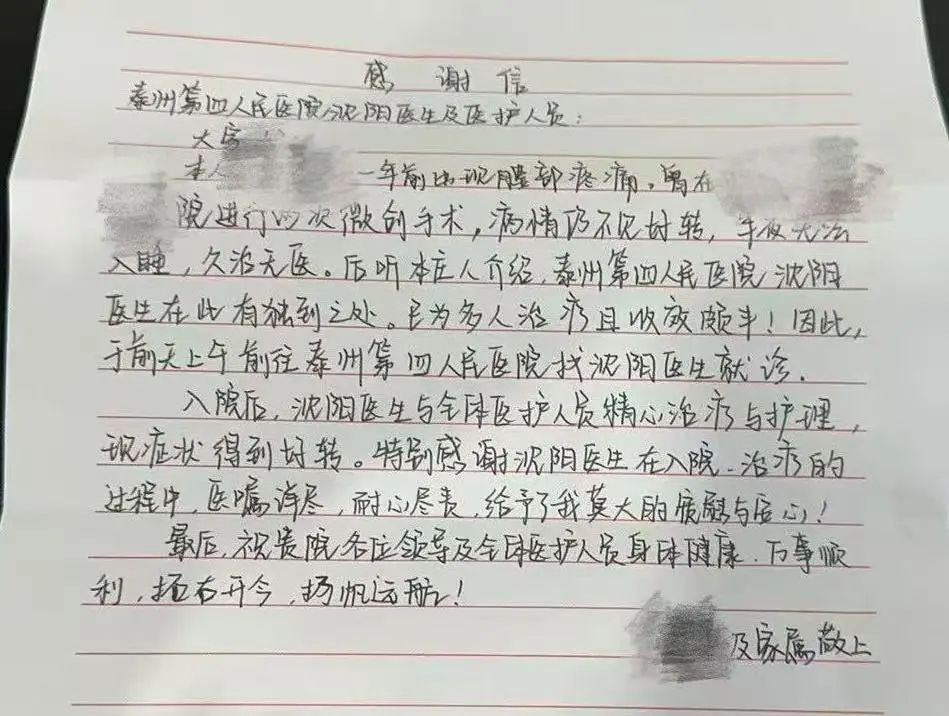 感 谢 信
泰州第四人民医院沈阳医生及医护人员:
大
本 一年前出现腰部疼痛。曾在
院进行四次微创手术,病情仍不见好转,半夜无法
入睡,久治无医。后听本庄人介绍,泰州第四人民医院沈阳
医生在此有独到之处。已为多人治疗且收效颇丰!因此,
于前天上午前往泰州第四人民医院找沈阳医生就诊.
入院后,沈阳医生与全体医护人员精心治疗与护理,
现症状得到好转。特别感谢沈阳医生在入院、治疗的
过程中,医嘱详尽,耐心尽责,给予了我莫大的 与信心!
最后,祝贵院各位领导及全体医护人员身体健康.万事顺
利, 古开今,扬帆远航!
及家属敬上